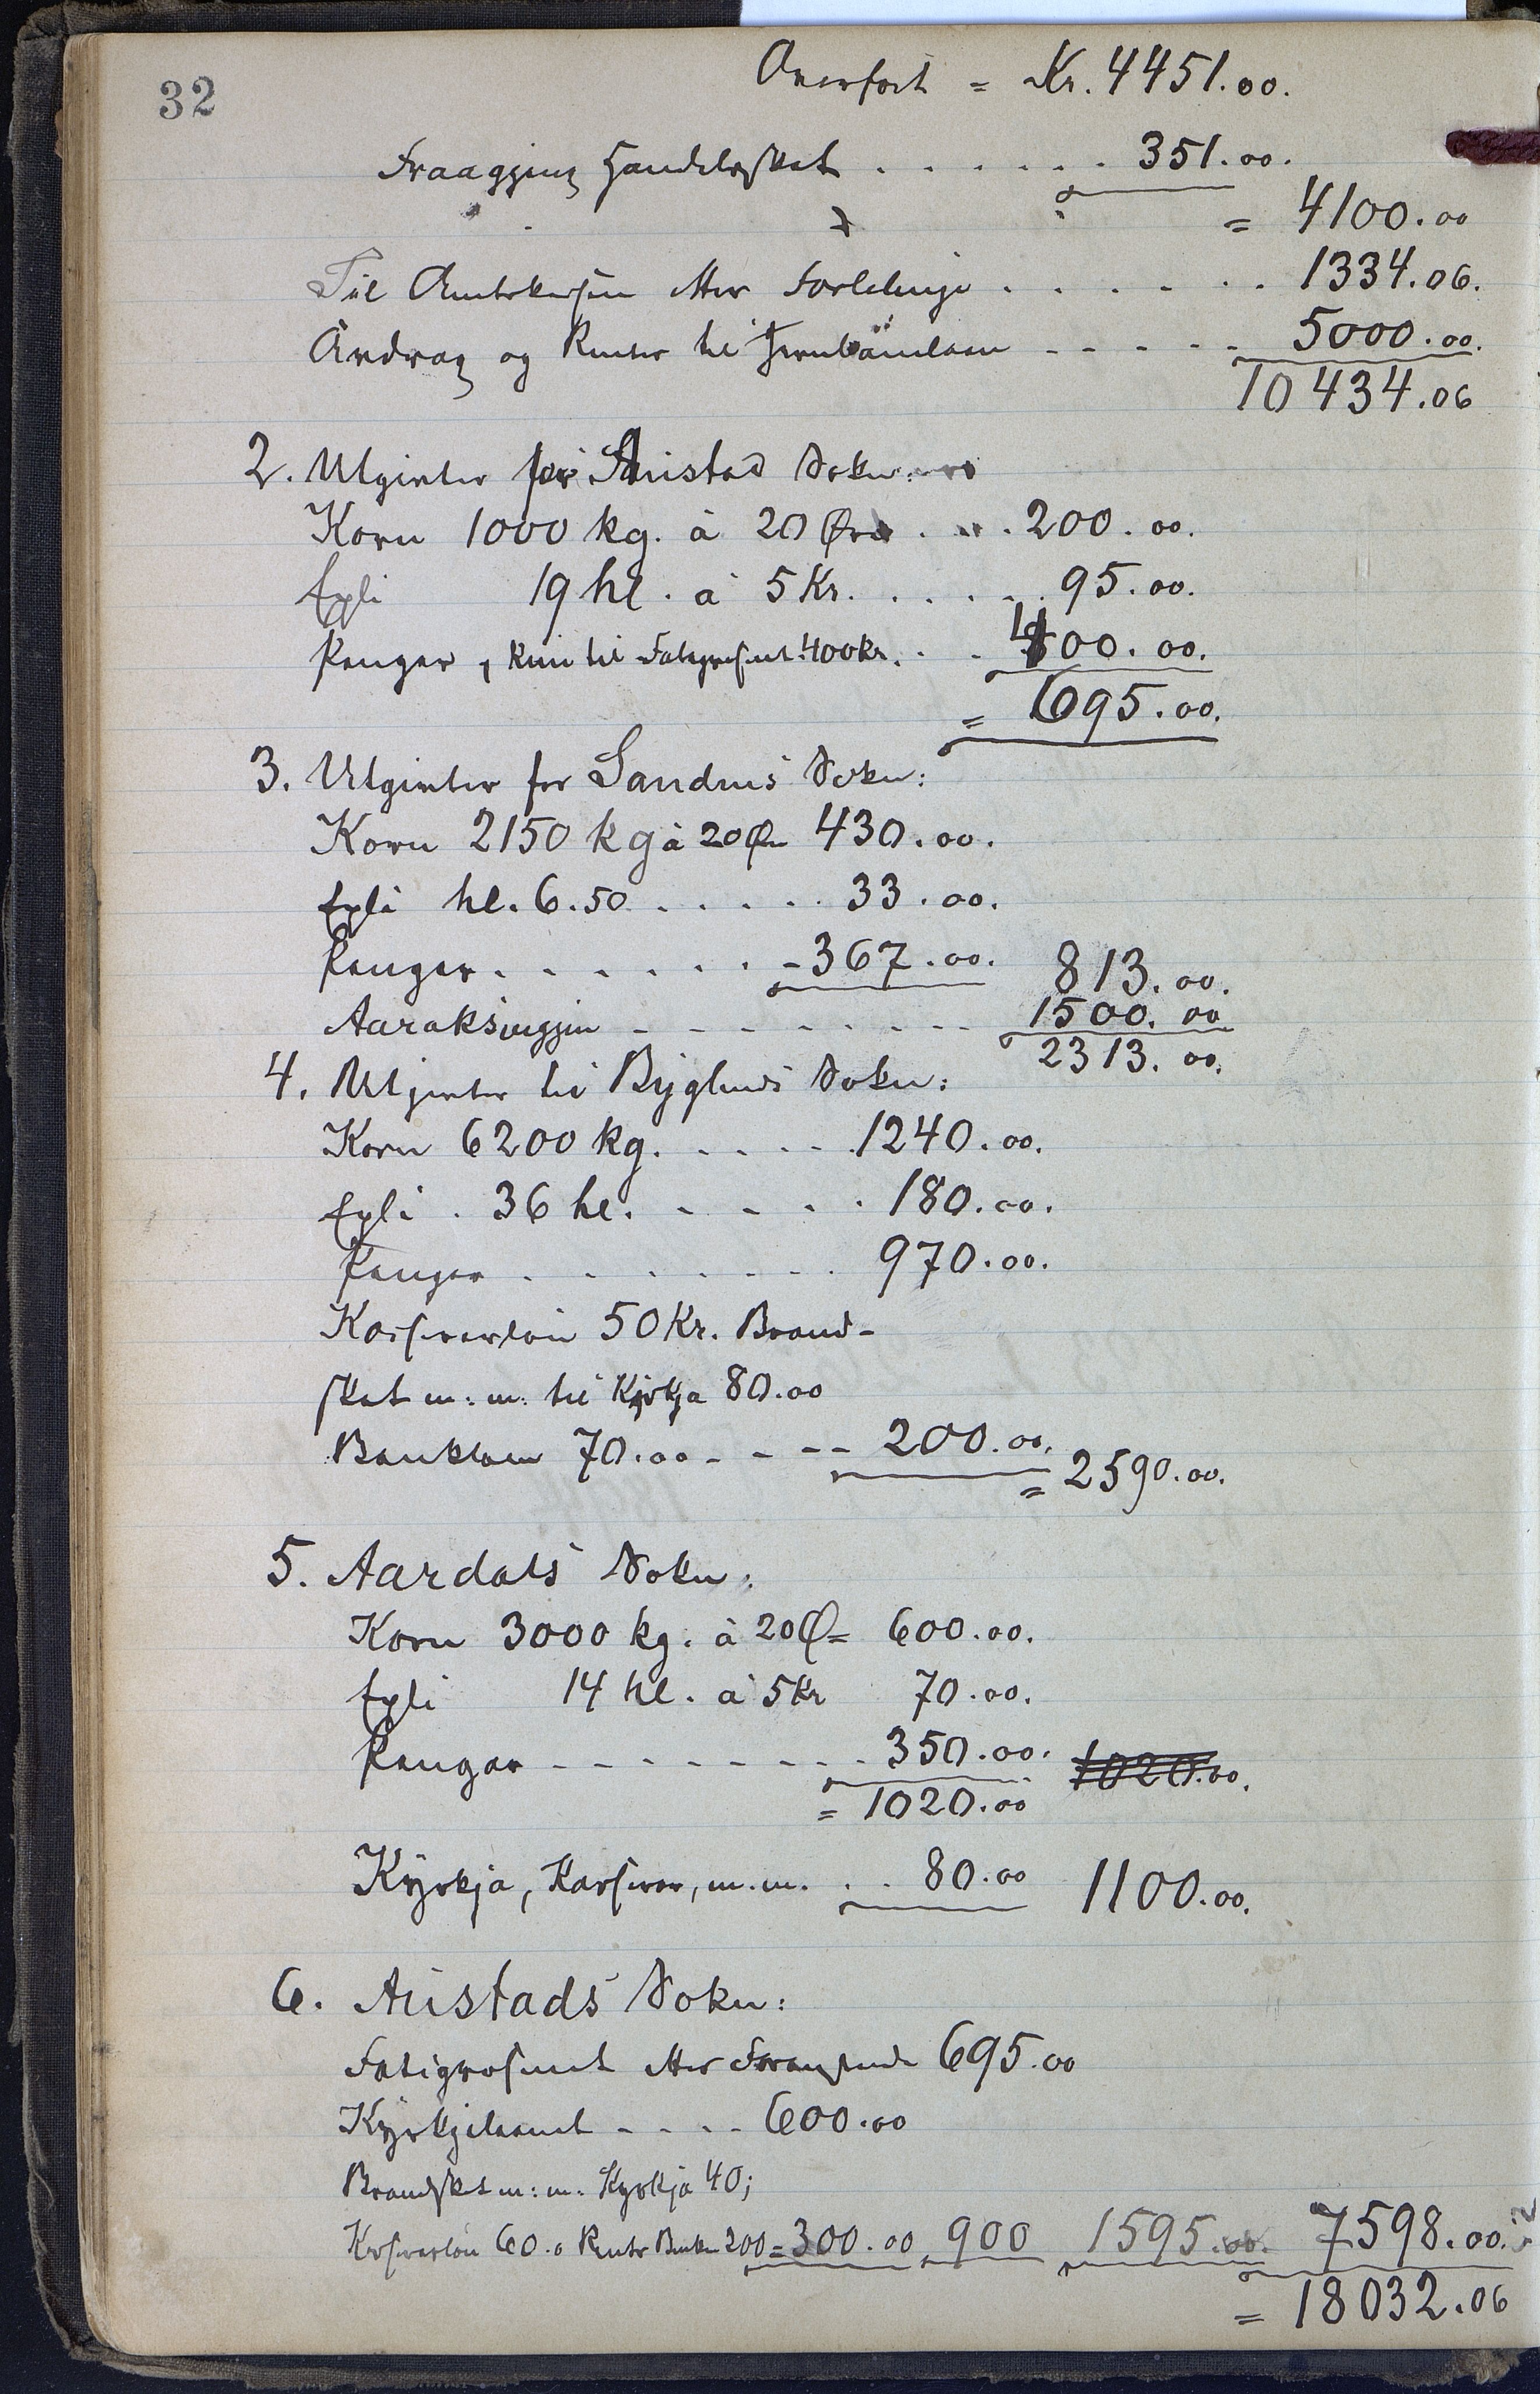 32
Overført = Kr. 4451.00.
Fraagjeng Handelsskat . . . . . . 351.00.
= 4100.00
Til Amtskassen etter Forlelengje . . . . . . 1334.06.
Avdrag og Renter til Jernbanelaan - - - - - 5000.00.
10 434.06
2. Utgifter for Austad Sokn:
Korn 1000 kg. à 20 Øre . . . 200.00.
Eple 19 hl. à 5 Kr. . . . . . 95.00.
Pengar, kun til Fatigvesenet 400 Kr. . . 400.00.
= 695.00.
3. Utgifter for Sandnes Sokn:
Korn 2150 kg à 20 Ø 430.00.
Eple hl. 6.50 . . . . . 33.00.
Pengar . . . . . . . - 367.00. 813.00.
Aaraksveggjen - - - - - - - - - 1500.00
2313.00.
4. Utgifter til Byglands Sokn:
Korn 6200 kg. . . . . . 1240.00.
Eple . 36 hl. - - - . . 180.00.
Pengar . . . . . . . . . 970.00.
Kasserarløn 50 Kr. Brand-
skat m:m: til Kyrkja 80.00
Banklaan 70.00 - - - - 200.00.
= 2590.00.
5. Aardals Sokn:
Korn 3000 kg. à 20 Ø = 600.00.
Eple 14 hl. à 5 Kr 70.00.
Pengar - - - - - - - - - 350.00. 1020.00.
= 1020.00
Kyrkja, Kasserar, m.m. . . 80.00 1100.00.
6. Austads Sokn:
Fatigvesenet etter Framande 695.00
Kyrkjelaanet - - - - 600.00
Brandskat m:m: Kyrkja 40;
Kasserarløn 60. o Rente Banken 200 = 300.00 900 1595.00. 7598.00.
= 18032.06